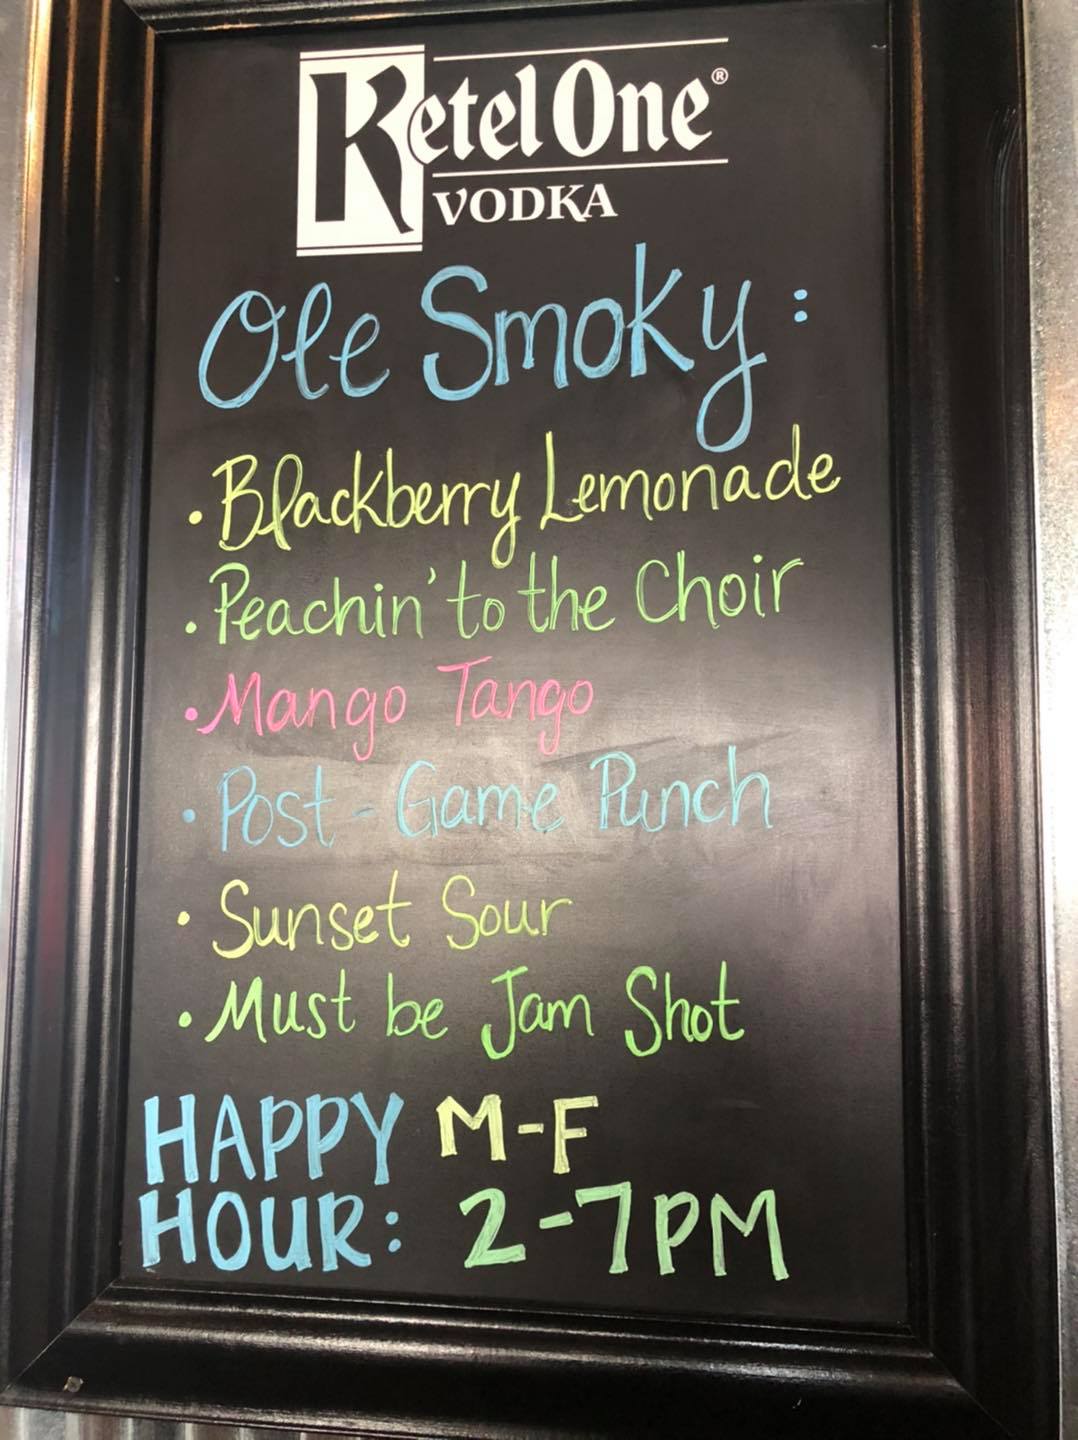 Ketel One®
VODKA
Ole Smoky:
• Blackberry Lemonade
• Peachin' to the Choir
• Mango Tango
• Post-Game Punch
• Sunset Sour
• Must be Jam Shot
HAPPY M-F
HOUR: 2-7PM